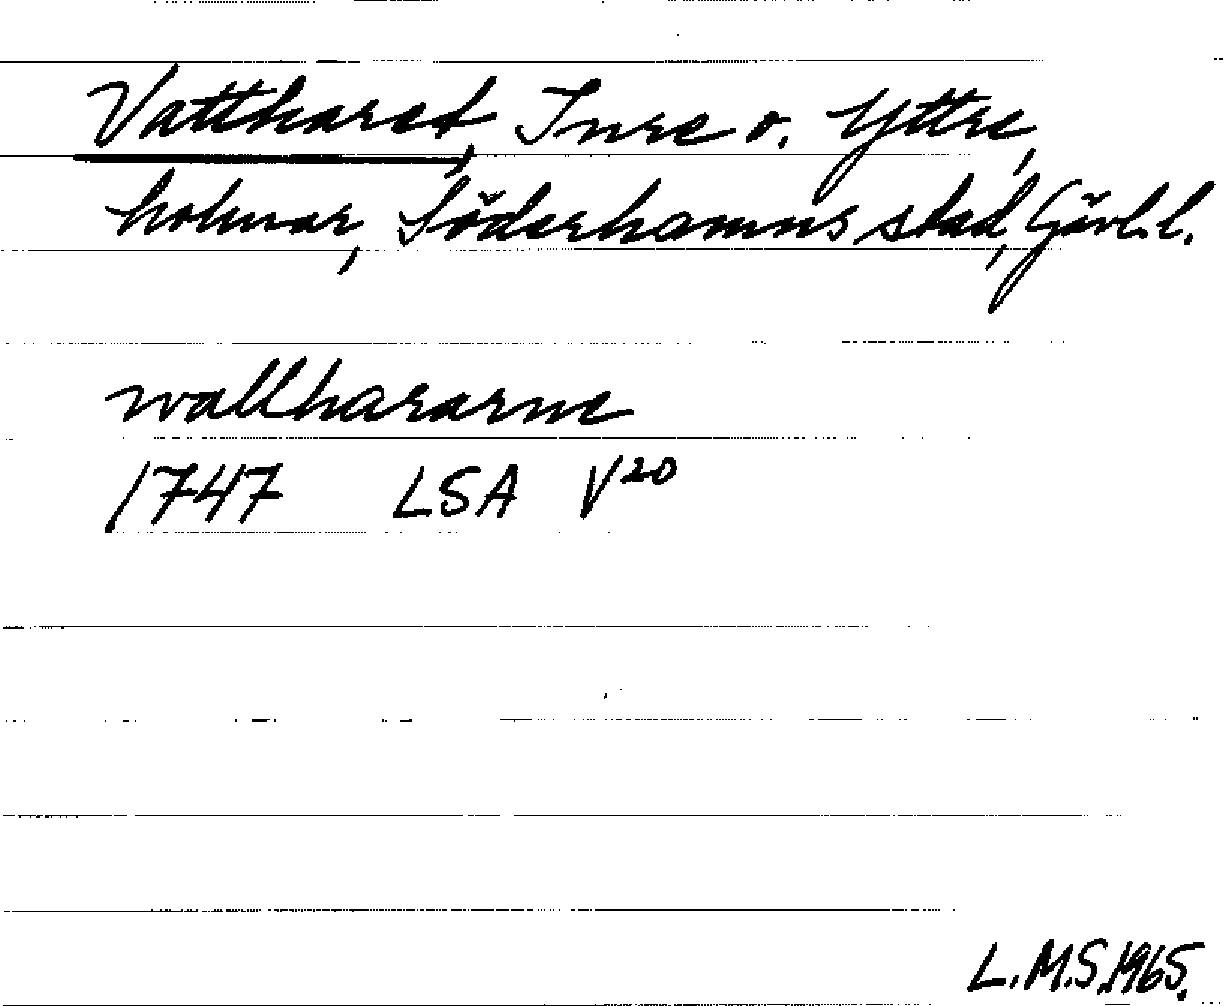 Vattharet, Inre o. Yttre,
holmar, Söderhamns stad, Gävl.l.
wallhararne
1747 LSA V20
L.M.S. 1965.